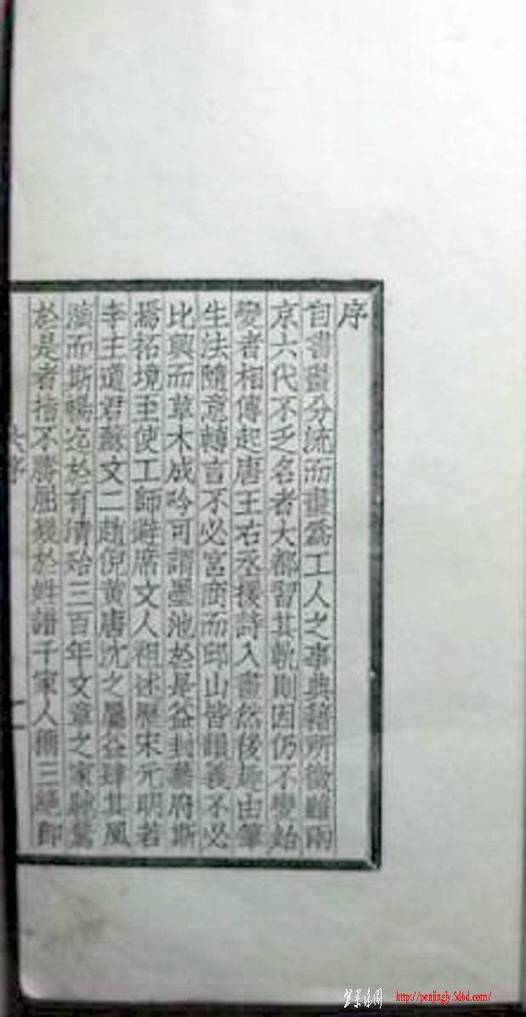 序
自書畫分流而畫爲工人之事典籍所徵雖兩
京六代不乏名者大都習其軌則因仍不變始
變者相傳起唐王右丞援詩入畫然後趣由筆
生法隨意轉言不必宮商而邱山皆韻義不必
比興而草木成吟可謂墨池於是益封藝府斯
焉拓境至使工師避席文人祖述歷宋元明若
李主道君蘇文二趙倪黃唐沈之屬益肆其風
演而斯暢迄於有清殆三百年文章之家馳騖
於是者指不勝屈幾於姓譜千家人擅三絕卽
序
http://penjingly.5d6d.com/